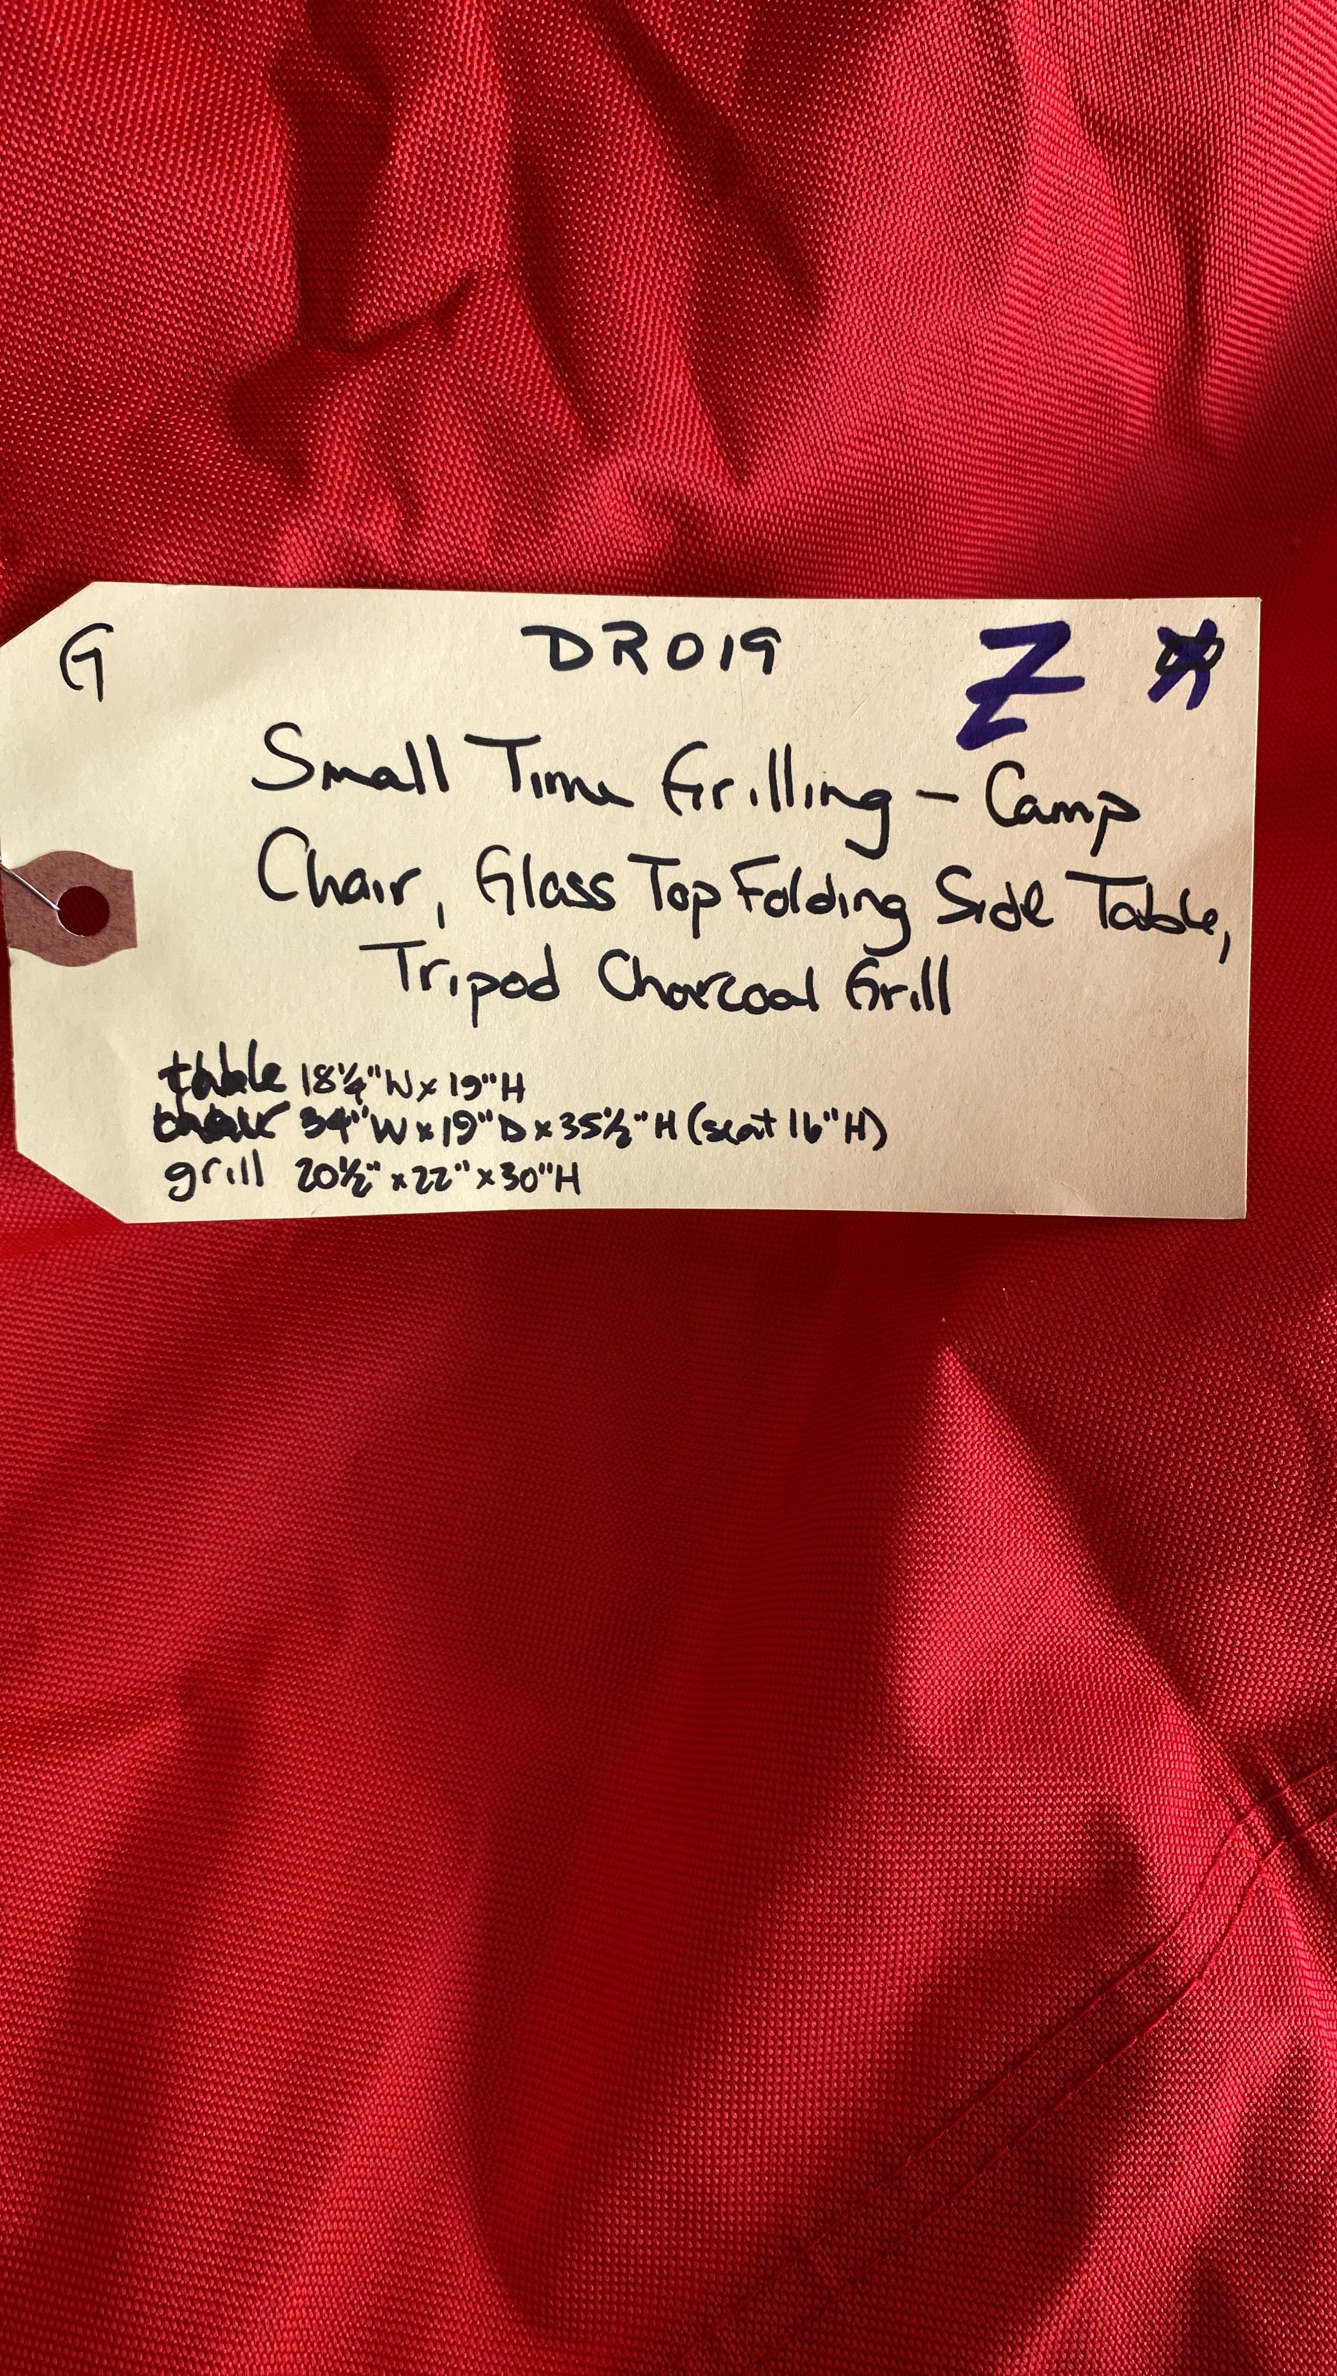 G DR019 Z *
Small Time Grilling – Camp
Chair, Glass Top Folding Side Table,
Tripod Charcoal Grill
table 18¼"W x 19"H
chair 34"W x 19"D x 35½"H (seat 16"H)
grill 20½" x 22" x 30"H